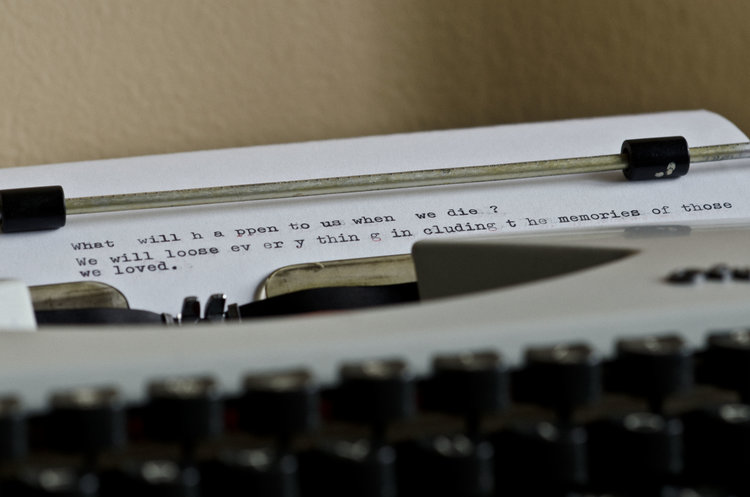 What will h a ppen to us when we die ?
We will loose ev er y thin g in cluding t he memories of those
we loved.